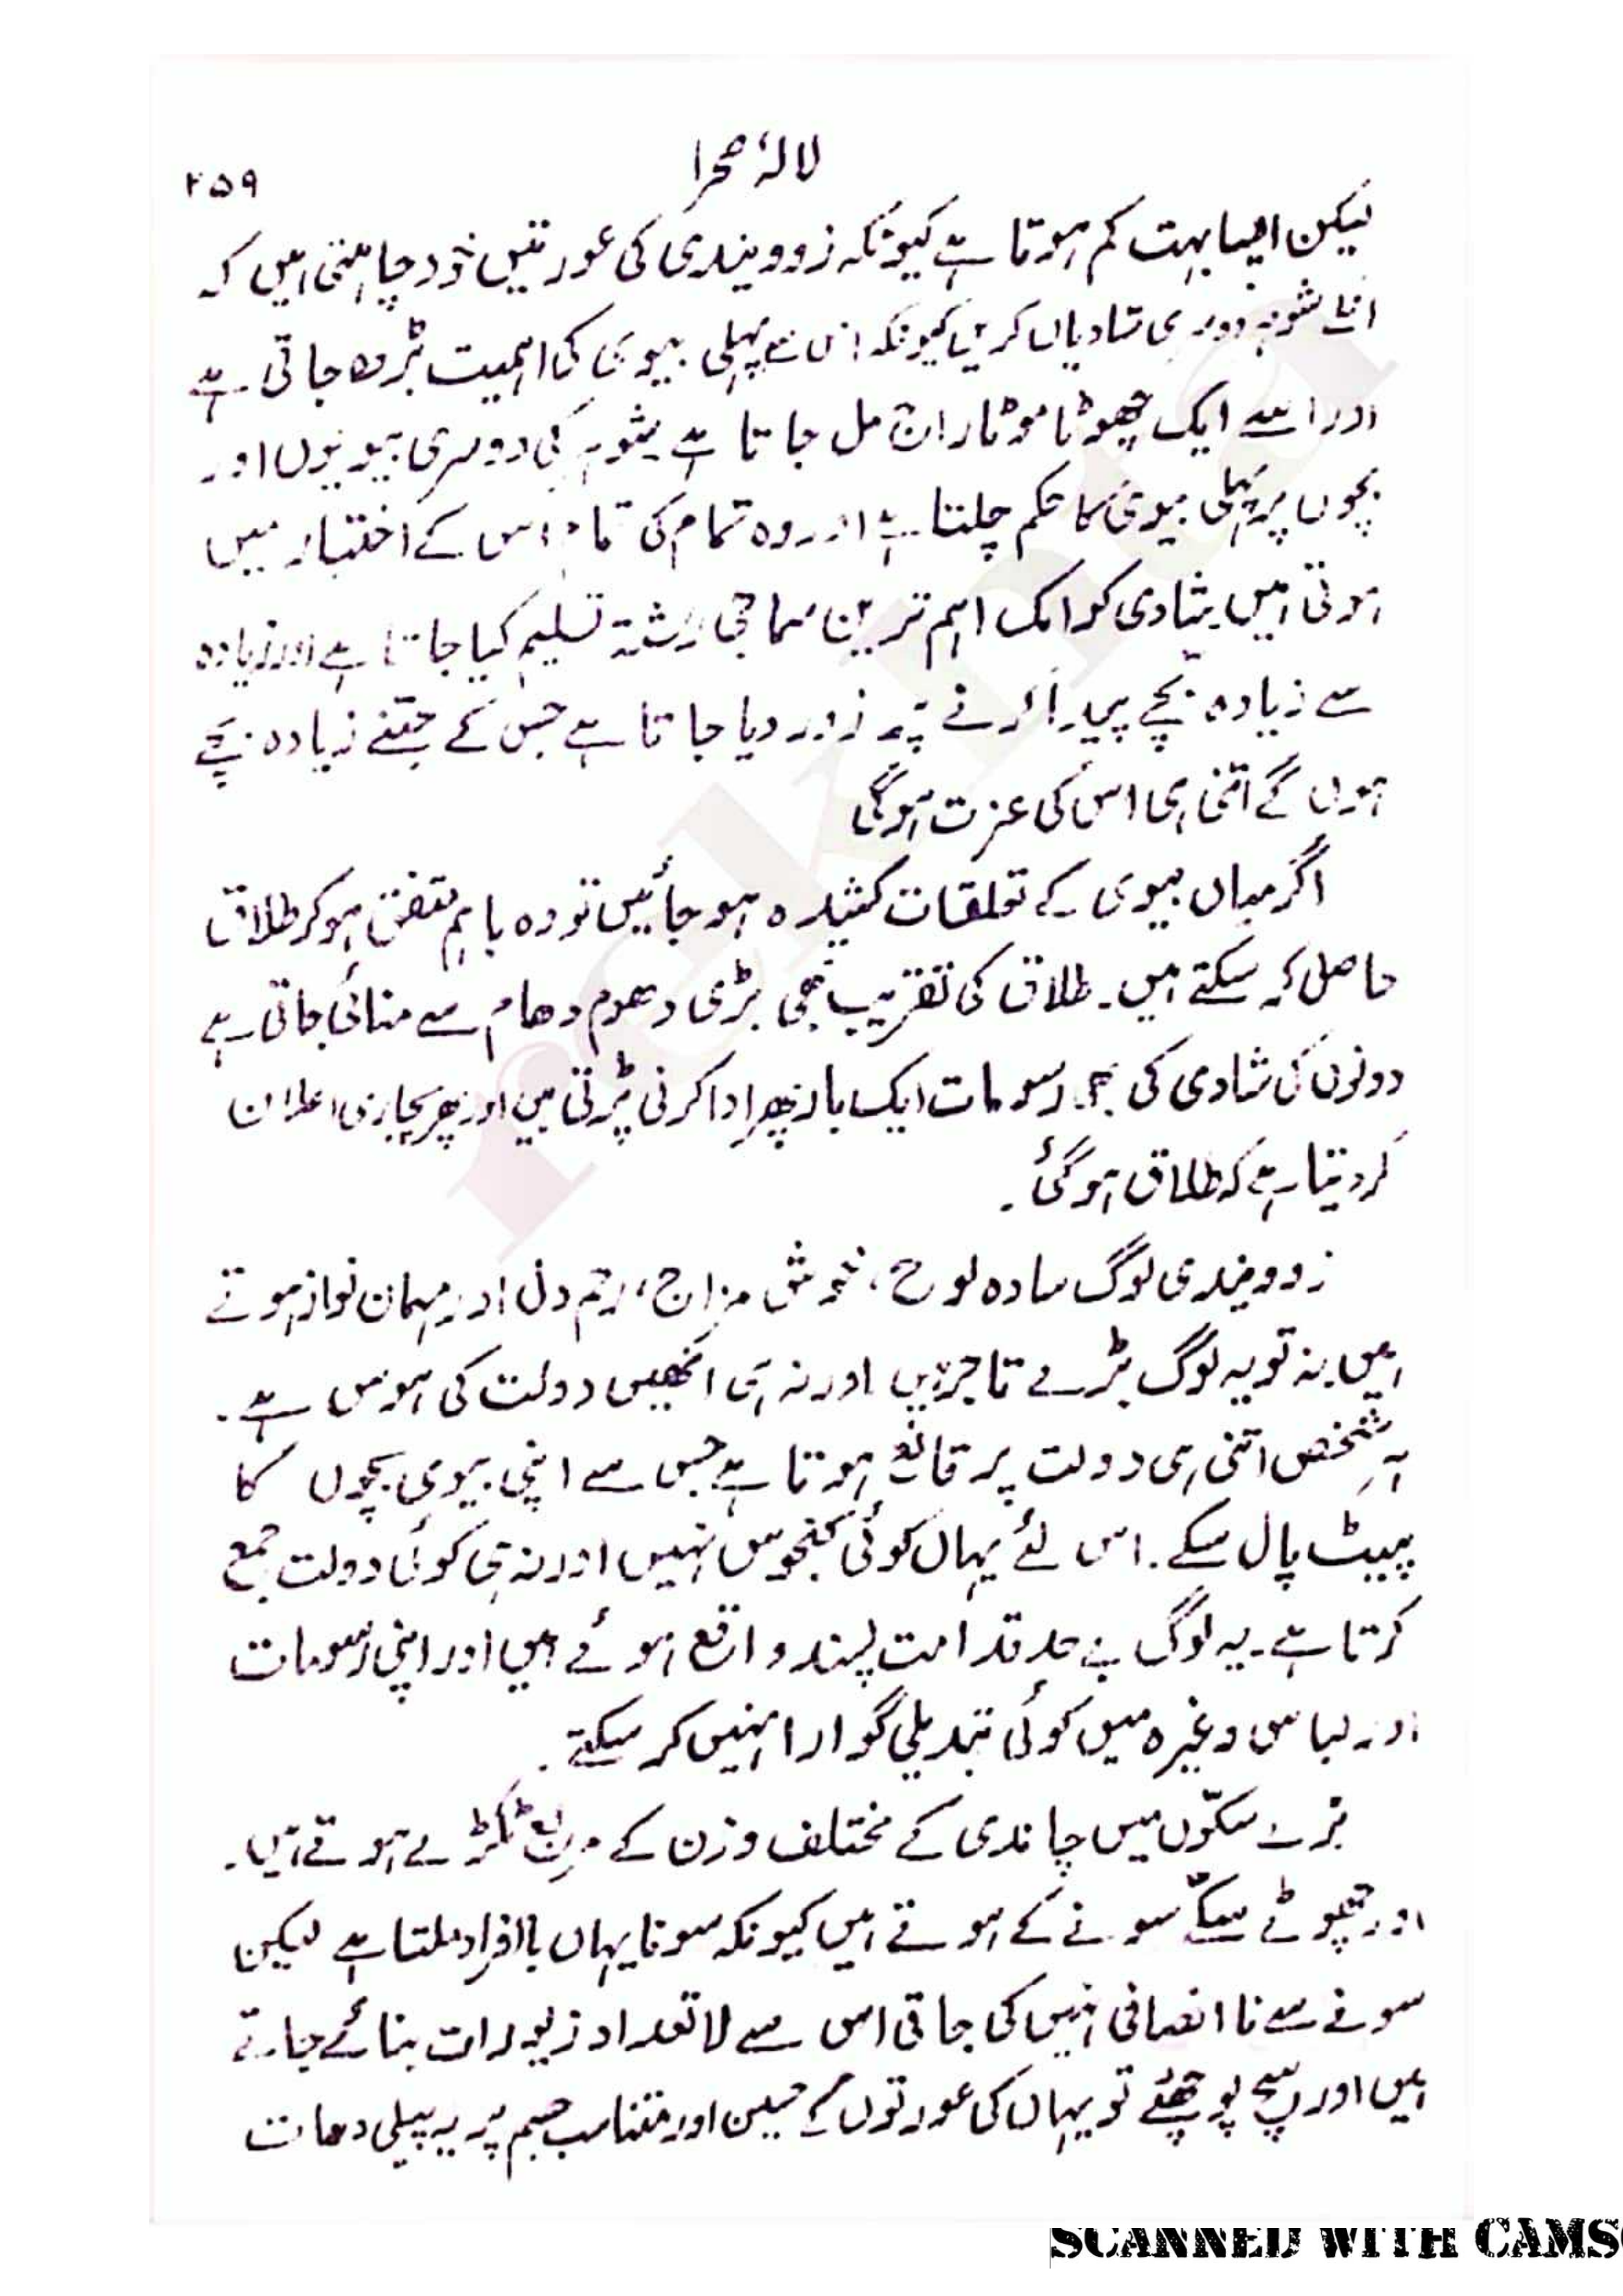 لالۂ صحرا
۲۵۹
لیکن ایسا بہت کم ہوتا ہے کیونکہ زوویندی کی عورتیں خود چاہتی ہیں کہ
انکے شوہر دوسری شادیاں کریں کیونکہ اس سے پہلی بیوی کی اہمیت بڑھ جاتی ہے
اور اسے ایک چھوٹا موٹا راج مل جاتا ہے شوہر کی دوسری بیویوں اور
بچوں پر پہلی بیوی کا حکم چلتا ہے اور وہ تمام کی تمام اس کے اختیار میں
ہوتی ہیں شادی کو ایک اہم ترین سماجی رشتہ تسلیم کیا جاتا ہے اور زیادہ
سے زیادہ بچے پیدا کرنے پر زور دیا جاتا ہے جس کے جتنے زیادہ بچے
ہوں گے اتنی ہی اس کی عزت ہوگی
اگر میاں بیوی کے تعلقات کشیدہ ہو جائیں تو وہ باہم متفق ہو کر طلاق
حاصل کر سکتے ہیں۔ طلاق کی تقریب بھی بڑی دھوم دھام سے منائی جاتی ہے
دونوں کی شادی کی رسومات ایک بار پھر ادا کرنی پڑتی ہیں اور پھر پجاری اعلان
کر دیتا ہے کہ طلاق ہو گئی۔
زوویندی لوگ سادہ لوح، خوش مزاج، رحم دل اور مہمان نواز ہوتے
ہیں نہ تو یہ لوگ بڑے تاجر ہیں اور نہ ہی انھیں دولت کی ہوس ہے۔
ہر شخص اتنی ہی دولت پر قانع ہوتا ہے جس سے اپنی بیوی بچوں کا
پیٹ پال سکے۔ اس لئے یہاں کوئی کنجوس نہیں اور نہ ہی کوئی دولت جمع
کرتا ہے۔ یہ لوگ بے حد قدامت پسند واقع ہوئے ہیں اور اپنی رسومات
اور لباس وغیرہ میں کوئی تبدیلی گوارا نہیں کر سکتے۔
بڑے سکّوں میں چاندی کے مختلف وزن کے مربع ٹکڑے ہوتے ہیں۔
اور چھوٹے سکّے سونے کے ہوتے ہیں کیونکہ سونا یہاں باافراد ملتا ہے لیکن
سونے سے نا انصافی نہیں کی جاتی اس سے لاتعداد زیورات بنائے جاتے
ہیں اور سچ پوچھئے تو یہاں کی عورتوں کے حسین اور متناسب جسم پر یہ پیلی دھات
SCANNED WITH CAMS